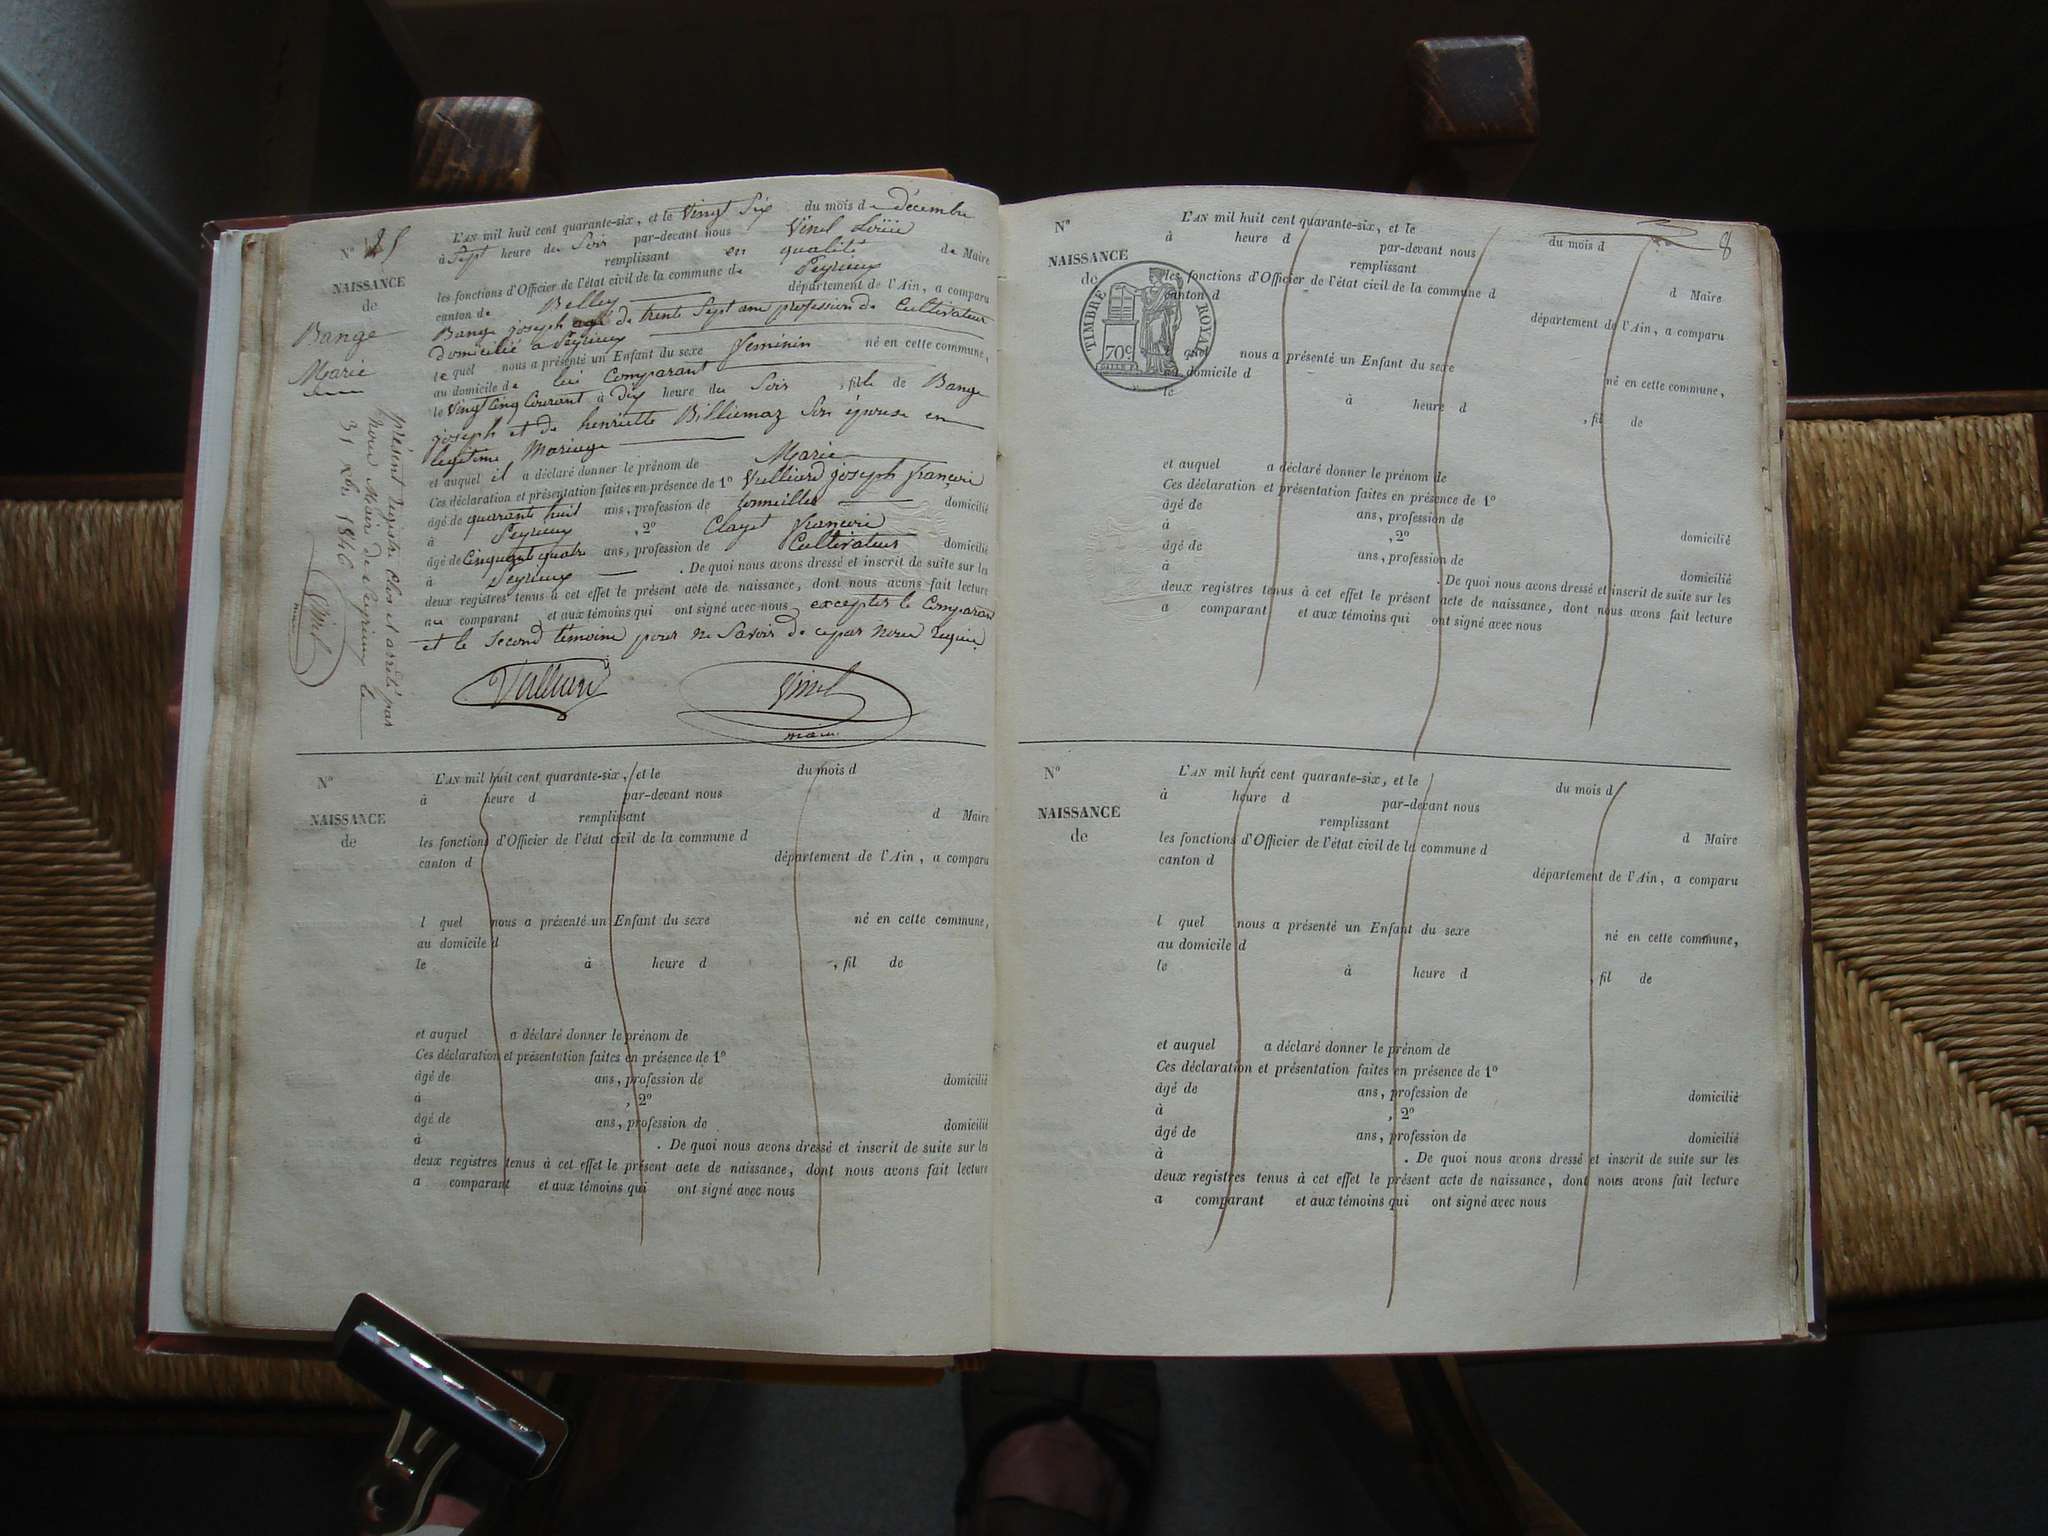 N° 25
NAISSANCE
de
Bange
Marie
L'AN mil huit cent quarante-six, et le Vingt Six du mois de décembre
à Sept heure du Soir par-devant nous Vinel
remplissant en qualité de Maire
les fonctions d'Officier de l'état civil de la commune de Peyrieux
canton de Belley département de l'Ain, a comparu
Bange joseph agé de trente Sept ans profession de Cultivateur
domicilié a Peyrieux
lequel nous a présenté un Enfant du sexe feminin né en cette commune,
au domicile de lui Comparant
le Vingt cinq Courant à dix heure du Soir, fille de Bange
joseph et de henriette Billiemaz Son épouse en
legitime Mariage
et auquel il a déclaré donner le prénom de Marie
Ces déclaration et présentation faites en présence de 1° Vulliard joseph françois
âgé de quarante huit ans, profession de domicilié
à Peyrieux, 2° Clayet françois
âgé de Cinquante quatre ans, profession de Cultivateur domicilié
à Peyrieux. De quoi nous avons dressé et inscrit de suite sur les
deux registres tenus à cet effet le présent acte de naissance, dont nous avons fait lecture
au comparant et aux témoins qui ont signé avec nous excepter le Comparant
et le Second témoins pour ne Savoir de ce par nous requis.
Vulliard
Vinel
maire
présent registre Clos et arrêté par
nous Maire de Peyrieux le
31 Xbre 1846
Vinel
N°
NAISSANCE
de
L'AN mil huit cent quarante-six, et le du mois d
à heure d par-devant nous
remplissant d Maire
les fonctions d'Officier de l'état civil de la commune d
canton d département de l'Ain, a comparu
l quel nous a présenté un Enfant du sexe né en cette commune,
au domicile d
le à heure d , fil de
et auquel a déclaré donner le prénom de
Ces déclaration et présentation faites en présence de 1°
âgé de ans, profession de domicilié
à , 2°
âgé de ans, profession de domicilié
à . De quoi nous avons dressé et inscrit de suite sur les
deux registres tenus à cet effet le présent acte de naissance, dont nous avons fait lecture
a comparant et aux témoins qui ont signé avec nous
8
N°
NAISSANCE
de
TIMBRE ROYAL
70c
L'AN mil huit cent quarante-six, et le du mois d
à heure d par-devant nous
remplissant d Maire
les fonctions d'Officier de l'état civil de la commune d
canton d département de l'Ain, a comparu
quel nous a présenté un Enfant du sexe né en cette commune,
au domicile d
le à heure d , fil de
et auquel a déclaré donner le prénom de
Ces déclaration et présentation faites en présence de 1°
âgé de ans, profession de domicilié
à , 2°
âgé de ans, profession de domicilié
à . De quoi nous avons dressé et inscrit de suite sur les
deux registres tenus à cet effet le présent acte de naissance, dont nous avons fait lecture
a comparant et aux témoins qui ont signé avec nous
N°
NAISSANCE
de
L'AN mil huit cent quarante-six, et le du mois d
à heure d par-devant nous
remplissant d Maire
les fonctions d'Officier de l'état civil de la commune d
canton d département de l'Ain, a comparu
l quel nous a présenté un Enfant du sexe né en cette commune,
au domicile d
le à heure d , fil de
et auquel a déclaré donner le prénom de
Ces déclaration et présentation faites en présence de 1°
âgé de ans, profession de domicilié
à , 2°
âgé de ans, profession de domicilié
à . De quoi nous avons dressé et inscrit de suite sur les
deux registres tenus à cet effet le présent acte de naissance, dont nous avons fait lecture
a comparant et aux témoins qui ont signé avec nous